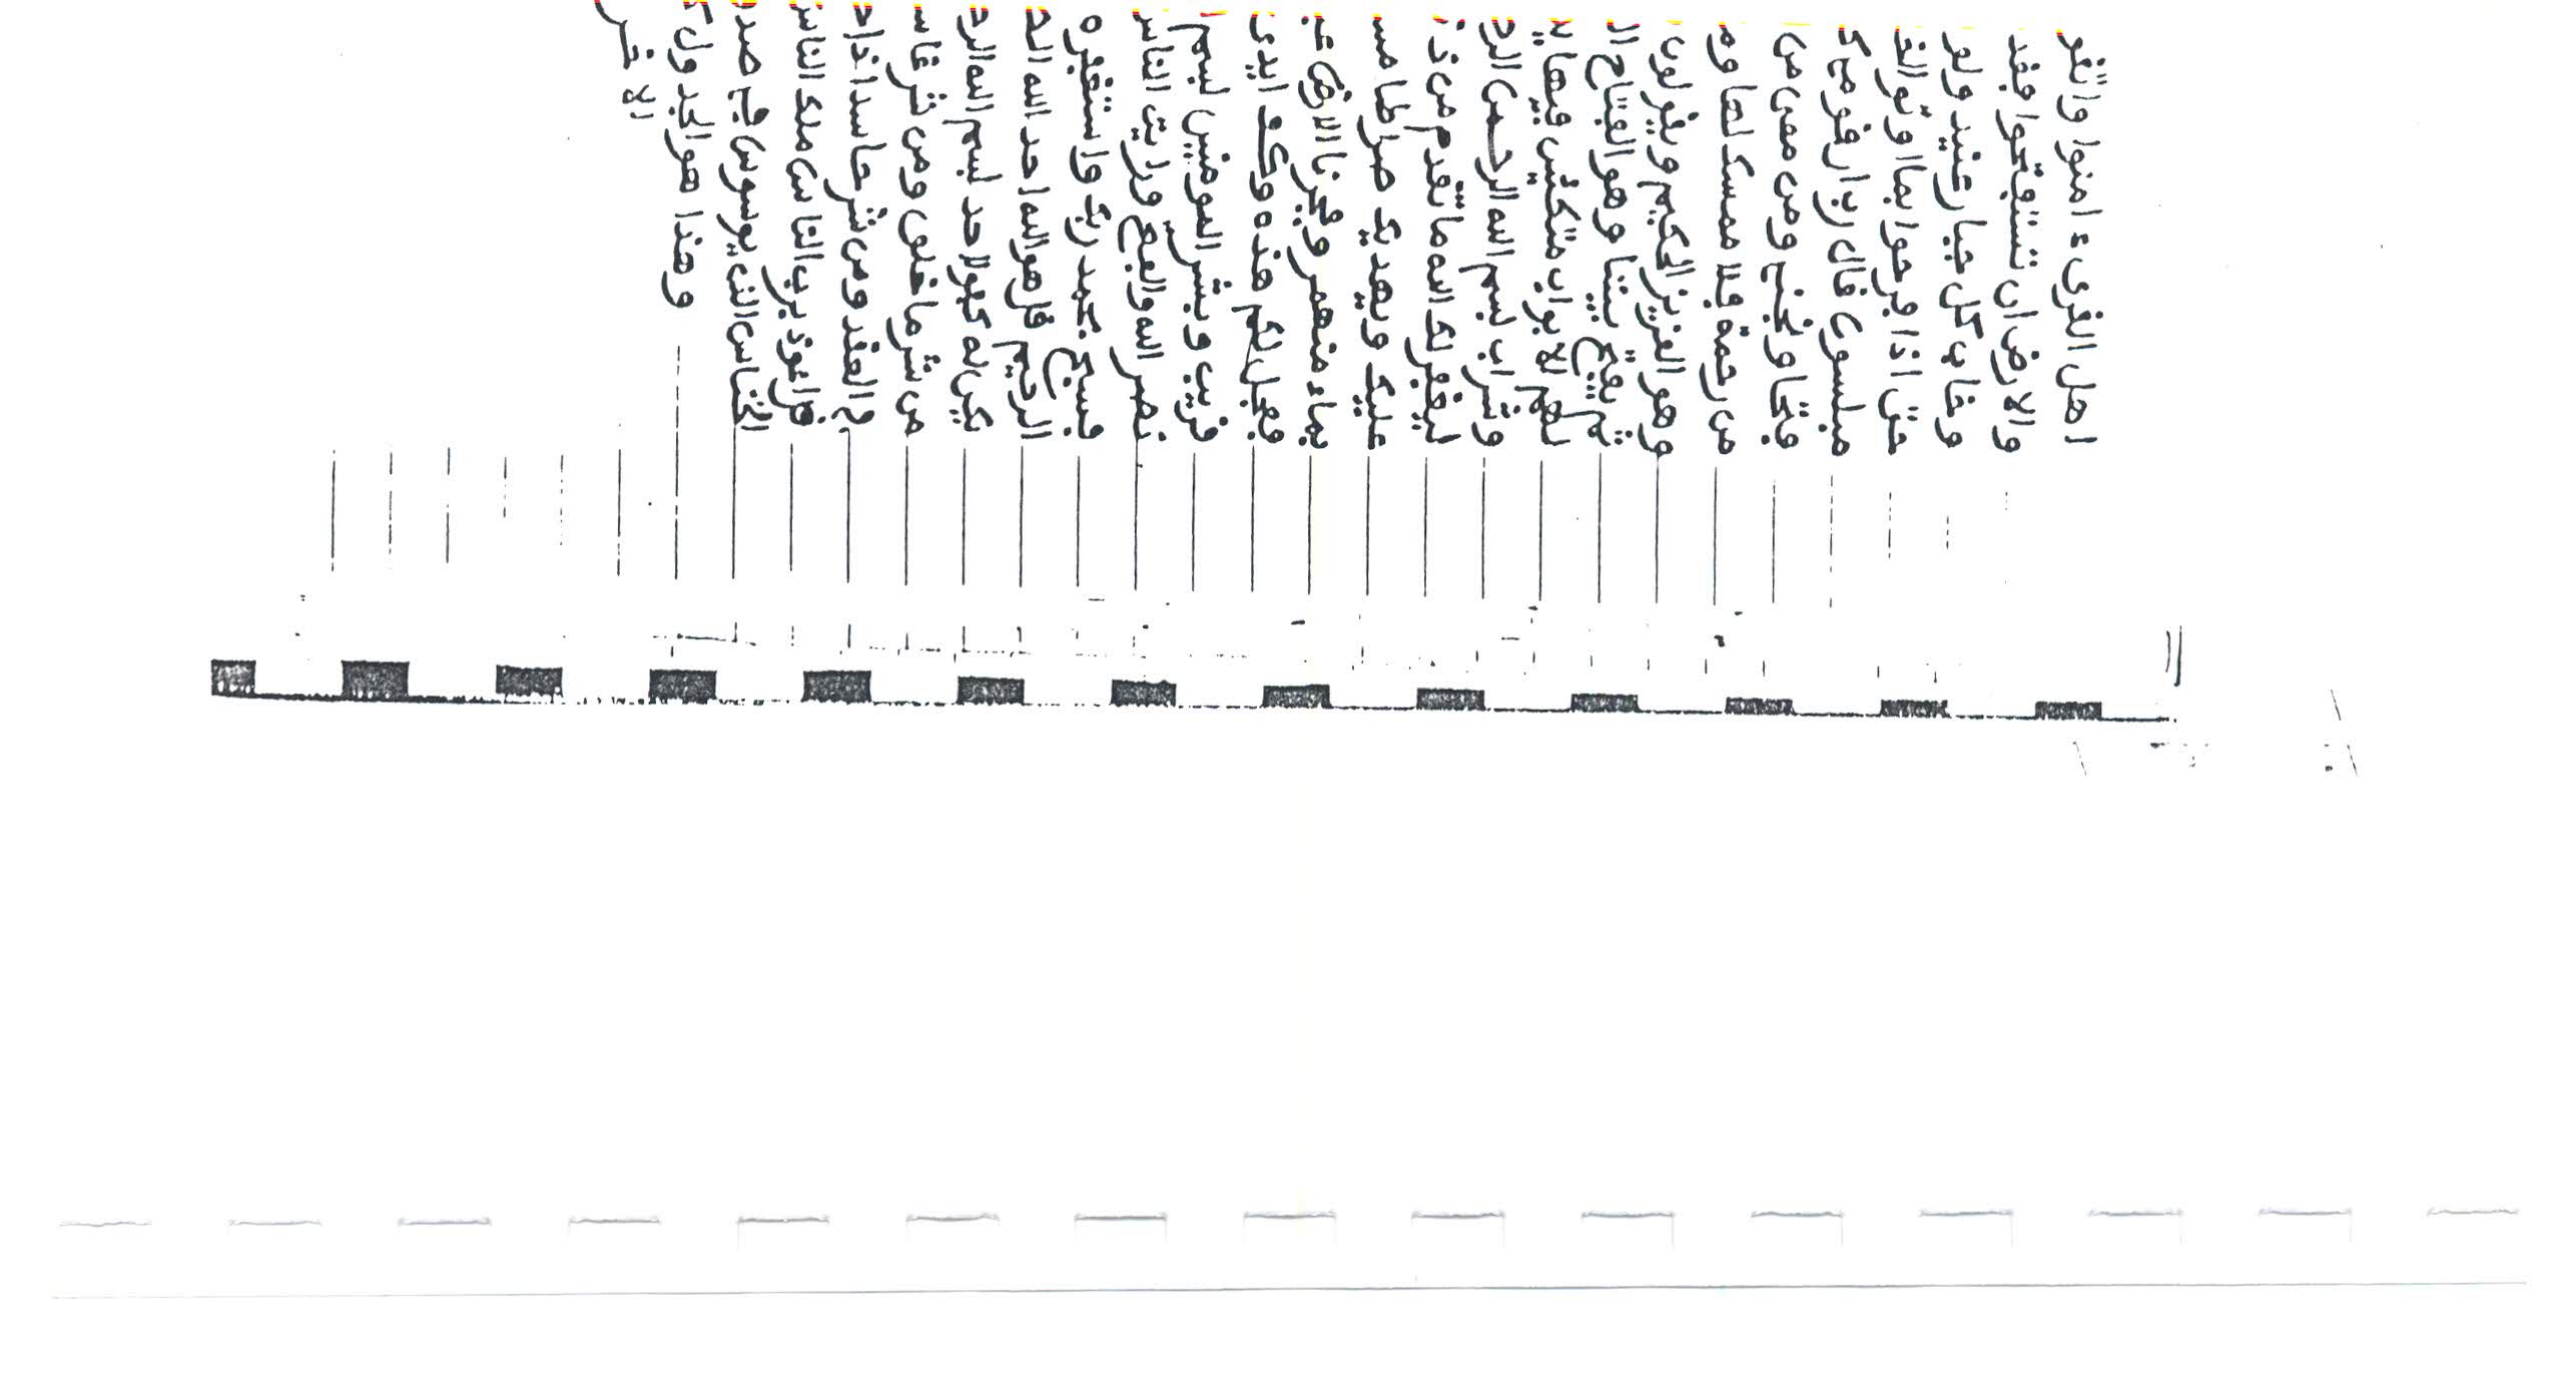 اهل القرىء امنوا واتقو
والارض ان تستفتحوا فقد
وخاب كل جبار عنيد ولو
حتى اذا فرحوا بما اوتوا
مبلسون قال رب ان قومي ك
فتحا ونجني ومن معي من
من رحمة فلا ممسك لها وم
وهو العزيز الحكيم ويقولون
ثم يفتح بيننا وهو الفتاح ال
لهم الابواب متكئين فيها يد
وشراب بسم الله الرحمن الر
ليغفر لك الله ما تقدم من ذ
عليك ويهديك صراطا مس
بماء منهمر وفجرنا الارض ع
فعجل لكم هذه وكف ايدى
قريب وبشر المومنين بسم ا
نصر الله والفتح ورايت الناس
فسبح بحمد ربك واستغفره
الرحيم قل هو الله احد الله الص
يكن له كفوا احد بسم الله الر
من شر ما خلق ومن شر غاس
في العقد ومن شر حاسد اذا ح
قل اعوذ برب الناس ملك الناس
الخناس الذي يوسوس في صدو
وهذا هو الجدول ك